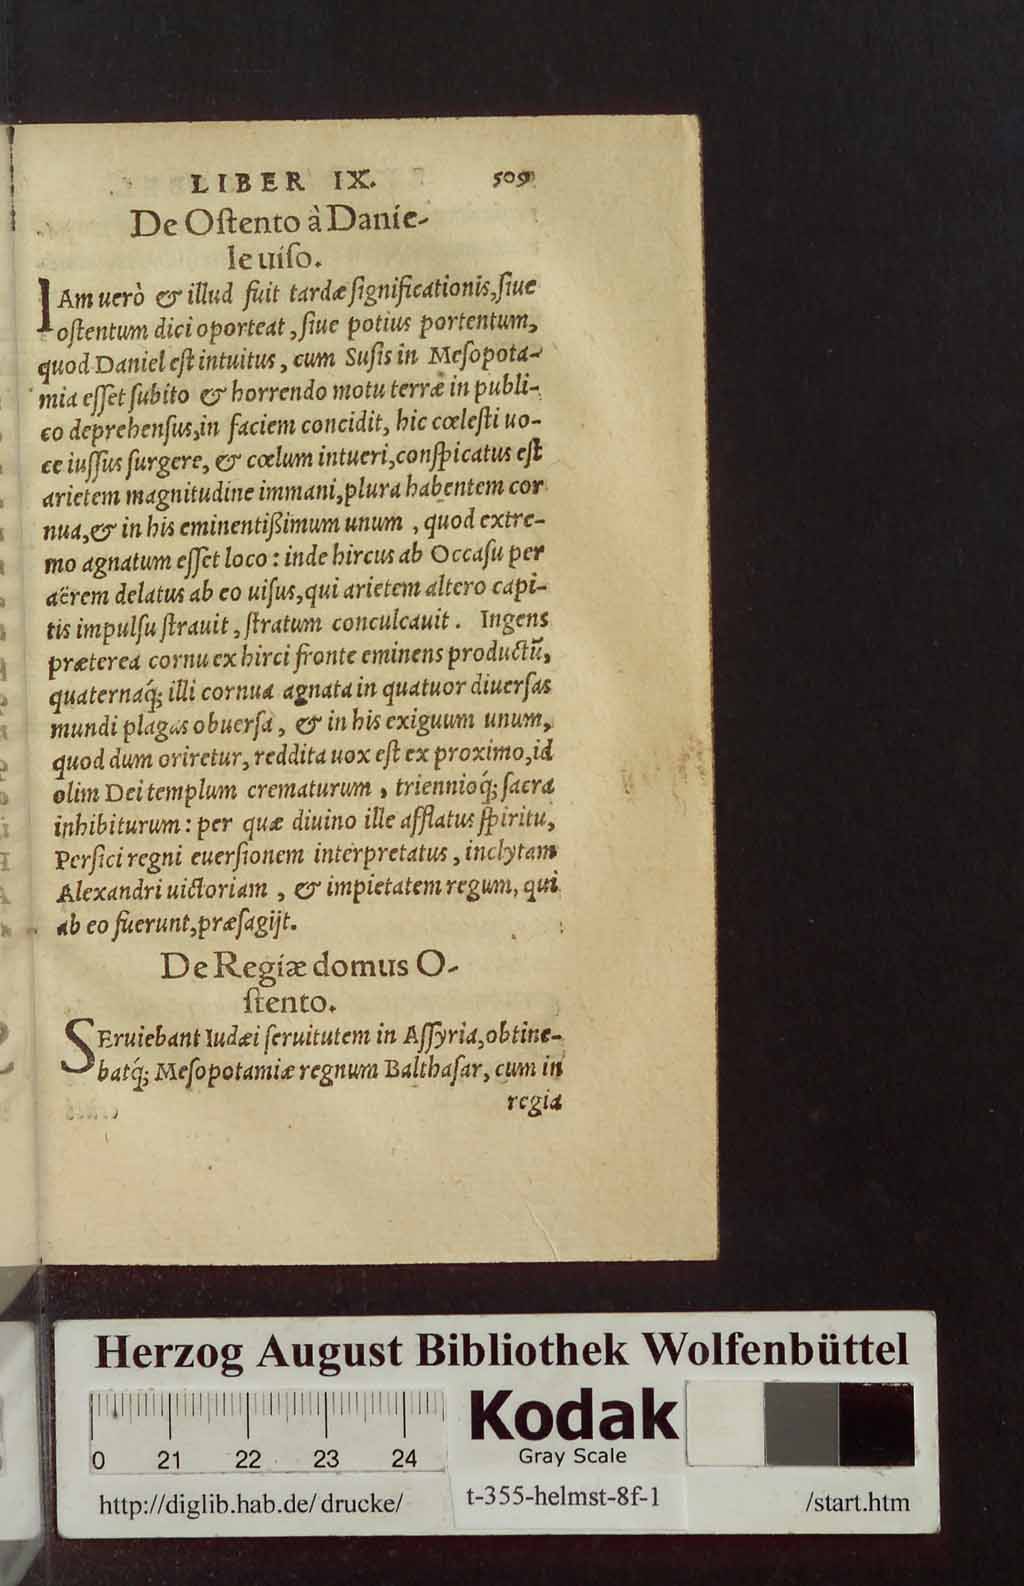 LIBER IX. 509
De Oſtento à Danie-
le uiſo.
IAm uerò & illud fuit tardæ ſignificationis, ſiue
oſtentum dici oporteat, ſiue potius portentum,
quod Daniel eſt intuitus, cum Suſis in Meſopota-
mia eſſet ſubito & horrendo motu terræ in publi-
co deprehenſus, in faciem concidit, hic cœleſti uo-
ce iuſſus ſurgere, & cœlum intueri, conſpicatus eſt
arietem magnitudine immani, plura habentem cor
nua, & in his eminentißimum unum, quod extre-
mo agnatum eſſet loco: inde hircus ab Occaſu per
aërem delatus ab eo uiſus, qui arietem altero capi-
tis impulſu ſtrauit, ſtratum conculcauit. Ingens
præterea cornu ex hirci fronte eminens productũ,
quaternaq́; illi cornua agnata in quatuor diuerſas
mundi plagas obuerſa, & in his exiguum unum,
quod dum oriretur, reddita uox eſt ex proximo, id
olim Dei templum crematurum, trienniоq́; ſacra
inhibiturum: per quæ diuino ille afflatus ſpiritu,
Perſici regni euerſionem interpretatus, inclytam
Alexandri uictoriam, & impietatem regum, qui
ab eo fuerunt, præſagijt.
De Regiæ domus O-
ſtento.
SEruiebant Iudæi ſeruitutem in Aſſyria, obtine-
batq́; Meſopotamiæ regnum Balthaſar, cum in
regia
Herzog August Bibliothek Wolfenbüttel
0 21 22 23 24
Kodak
Gray Scale
http://diglib.hab.de/drucke/ t-355-helmst-8f-1 /start.htm